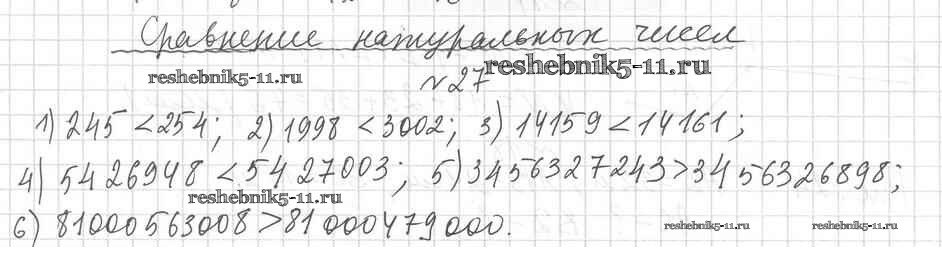 Сравнение натуральных чисел
reshebnik5-11.ru
№27
reshebnik5-11.ru
1) 245 < 254; 2) 1998 < 3002; 3) 14159 < 14161;
4) 5426948 < 5427003; 5) 3456327243 > 3456326898;
reshebnik5-11.ru
6) 81000563008 > 81000479000.
reshebnik5-11.ru
reshebnik5-11.ru